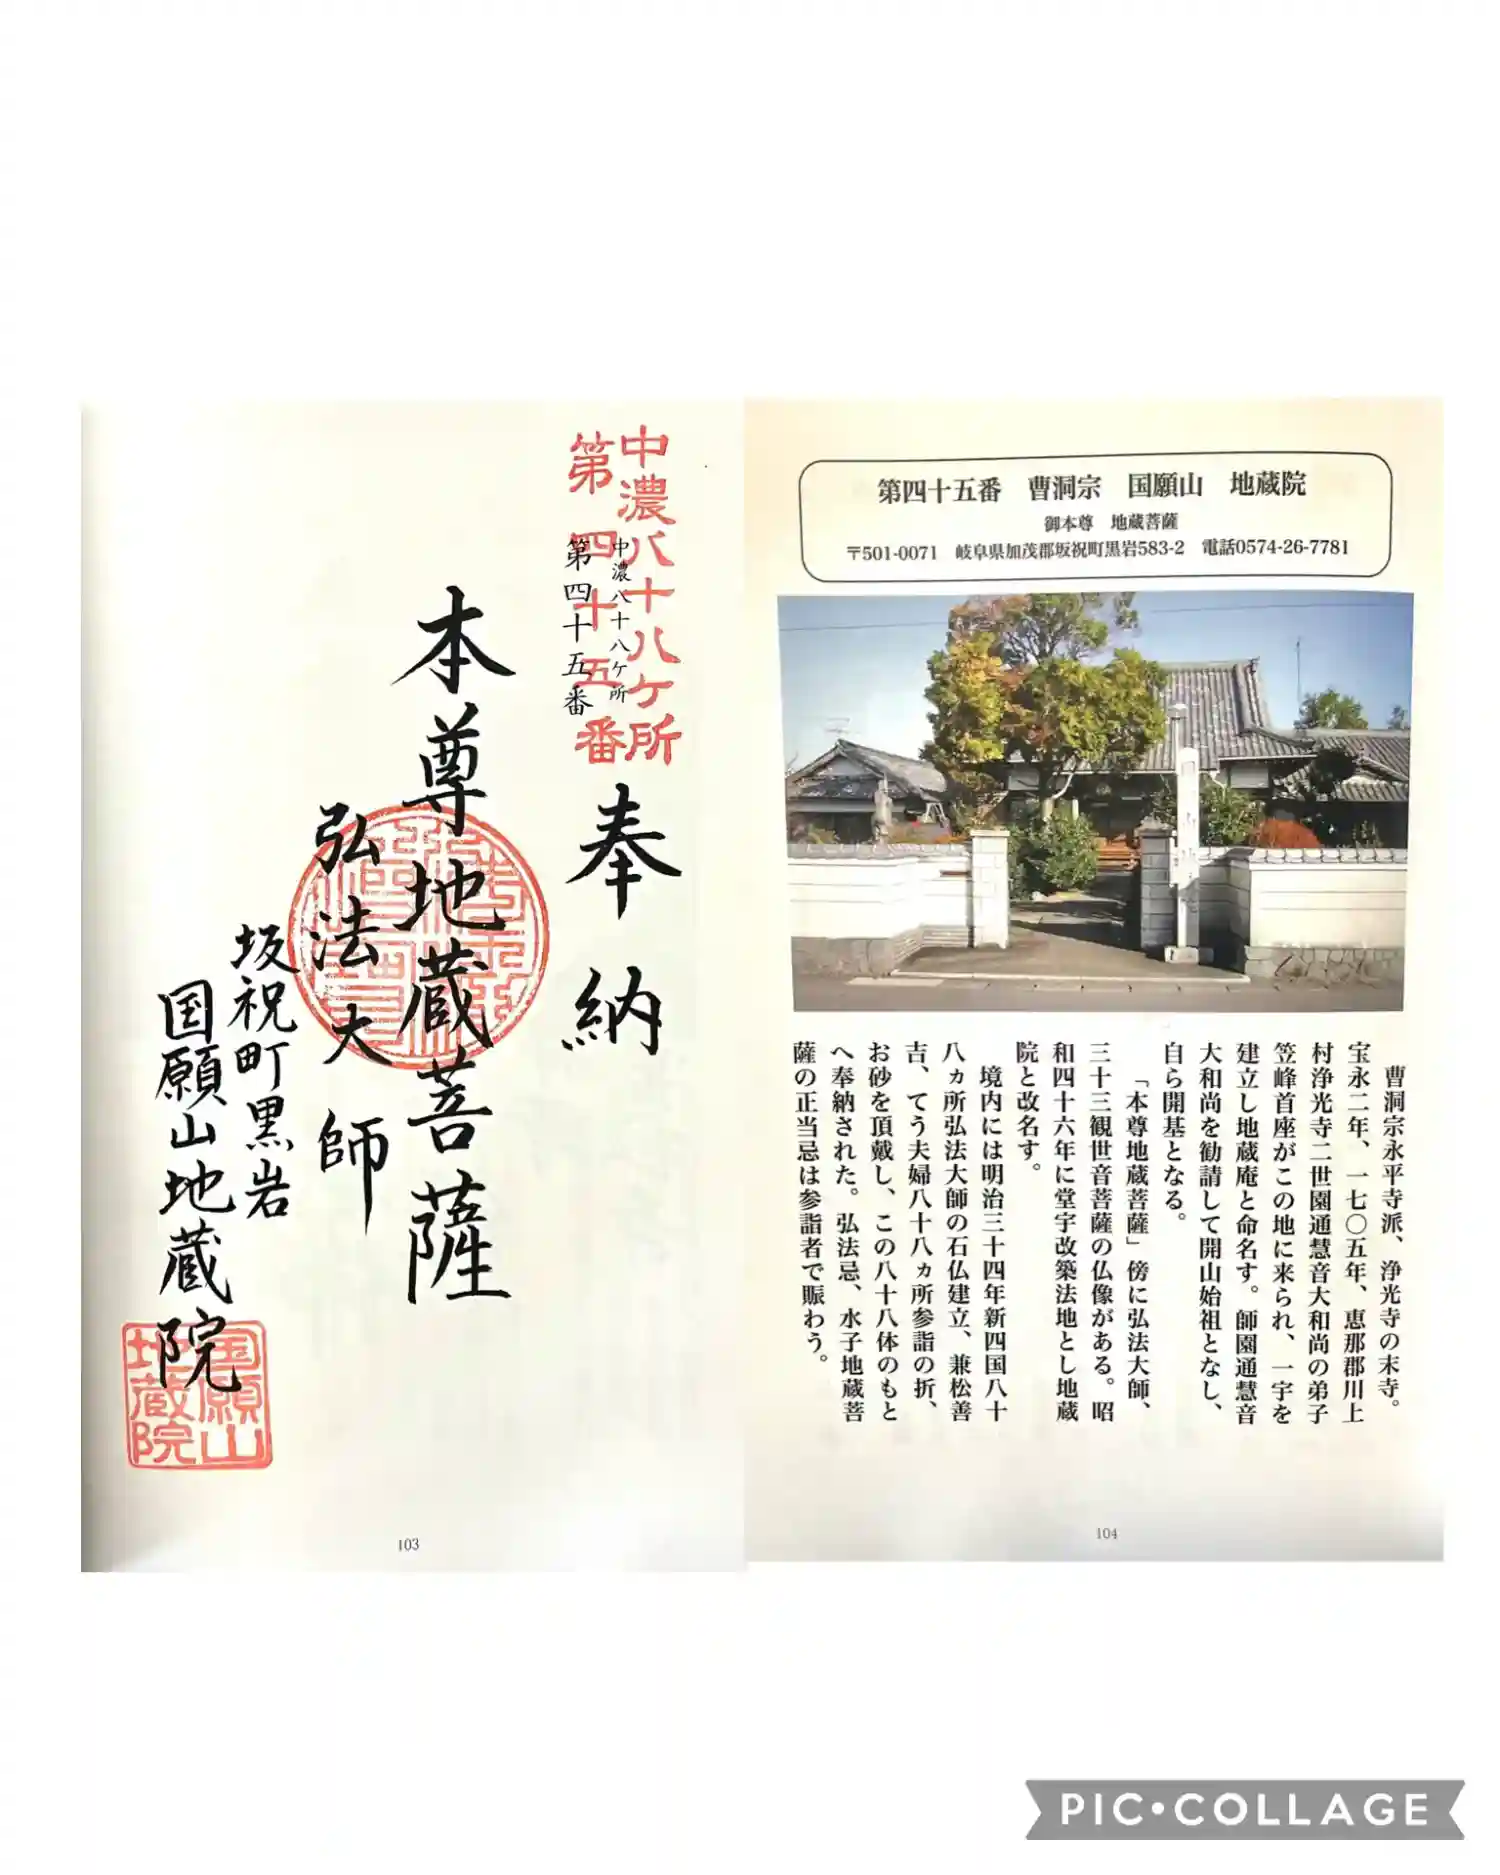 中濃八十八ケ所
第四十五番
中濃八十八ケ所
第四十五番
奉納
本尊地蔵菩薩
弘法大師
坂祝町黒岩
国願山地蔵院
国願山
地蔵院
103
第四十五番　曹洞宗　国願山　地蔵院
御本尊　地蔵菩薩
〒501-0071　岐阜県加茂郡坂祝町黒岩583-2　電話0574-26-7781
曹洞宗永平寺派、浄光寺の末寺。
宝永二年、一七〇五年、恵那郡川上
村浄光寺二世園通慧音大和尚の弟子
笠峰首座がこの地に来られ、一宇を
建立し地蔵庵と命名す。師園通慧音
大和尚を勧請して開山始祖となし、
自ら開基となる。
「本尊地蔵菩薩」傍に弘法大師、
三十三観世音菩薩の仏像がある。昭
和四十六年に堂宇改築法地とし地蔵
院と改名す。
境内には明治三十四年新四国八十
八ヵ所弘法大師の石仏建立、兼松善
吉、てう夫婦八十八ヵ所参詣の折、
お砂を頂戴し、この八十八体のもと
へ奉納された。弘法忌、水子地蔵菩
薩の正当忌は参詣者で賑わう。
104
PIC•COLLAGE